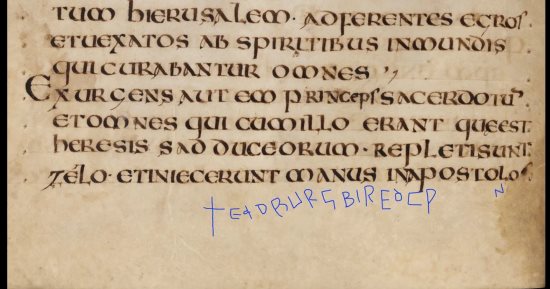 tum hierusalem · adferentes egros
et uexatos ab spiritibus inmundis
qui curabantur omnes
Exurgens autem princeps sacerdotū
et omnes qui cum illo erant quęest
heresis sadduceorum · repleti sunt
zélo · et iniecerunt manus in apostolos
N
+EADBURG BIREð CP